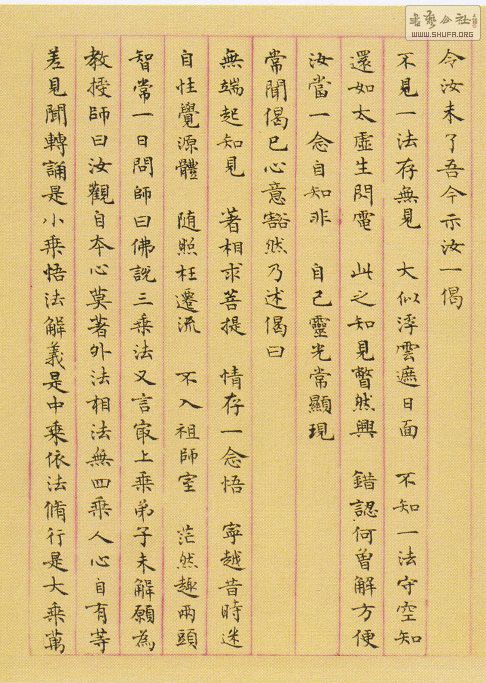 令汝未了吾今示汝一偈
不見一法存無見 大似浮雲遮日面 不知一法守空知
還如太虛生閃電 此之知見瞥然興 錯認何曾解方便
汝當一念自知非 自己靈光常顯現
常聞偈已心意豁然乃述偈曰
無端起知見 著相求菩提 情存一念悟 寧越昔時迷
自性覺源體 随照枉遷流 不入祖師室 茫然趣兩頭
智常一日問師曰佛說三乘法又言最上乘弟子未解願為
教授師曰汝觀自本心莫著外法相法無四乘人心自有等
差見聞轉誦是小乘悟法解義是中乘依法脩行是大乘萬
書藝公社
WWW.SHUFA.ORG